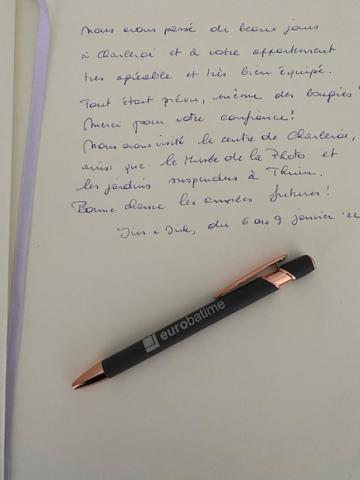 Nous avons passé de beaux jours
à Charleroi et à votre appartement
très agréable et très bien équipé.
Tout était prévu, même des bougies!
Merci pour votre confiance!
Nous avons visité le centre de Charleroi,
ainsi que le Musée de la Photo et
les jardins suspendus à Thuin.
Bonne chance les années futures!
Dirk, du 6 au 9 janvier '22
eurobatime